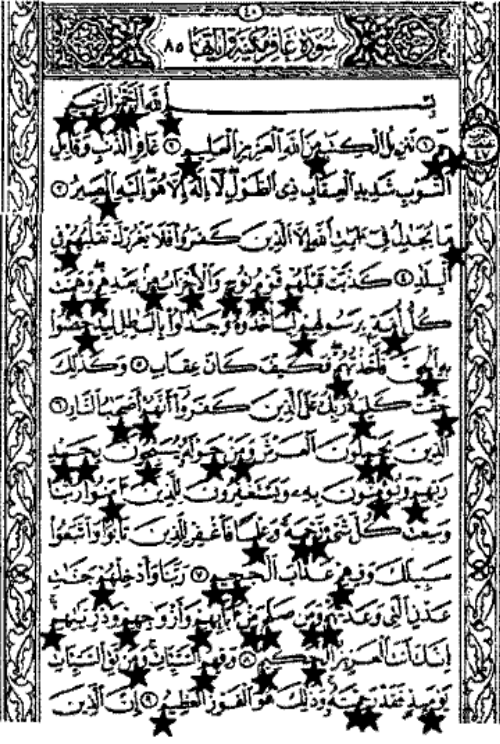 ٤٠
سورة غافر مكية وآياتها ٨٥
بسم الله الرحمن الرحيم
حم ١ تنزيل الكتب من الله العزيز العليم ٢ غافر الذنب وقابل
التوب شديد العقاب ذي الطول لا إله إلا هو إليه المصير ٣
ما يجدل في ءايت الله إلا الذين كفروا فلا يغررك تقلبهم في
البلد ٤ كذبت قبلهم قوم نوح والأحزاب من بعدهم وهمت
كل أمة برسولهم ليأخذوه وجدلوا بالبطل ليدحضوا
به الحق فأخذتهم فكيف كان عقاب ٥ وكذلك
حقت كلمت ربك على الذين كفروا أنهم أصحب النار ٦
الذين يحملون العرش ومن حوله يسبحون بحمد
ربهم ويؤمنون به ويستغفرون للذين ءامنوا ربنا
وسعت كل شيء رحمة وعلما فاغفر للذين تابوا واتبعوا
سبيلك وقهم عذاب الجحيم ٧ ربنا وأدخلهم جنت
عدن التي وعدتهم ومن صلح من ءابائهم وأزوجهم وذريتهم
إنك أنت العزيز الحكيم ٨ وقهم السيئات ومن تق السيئات
يومئذ فقد رحمته وذلك هو الفوز العظيم ٩ إن الذين